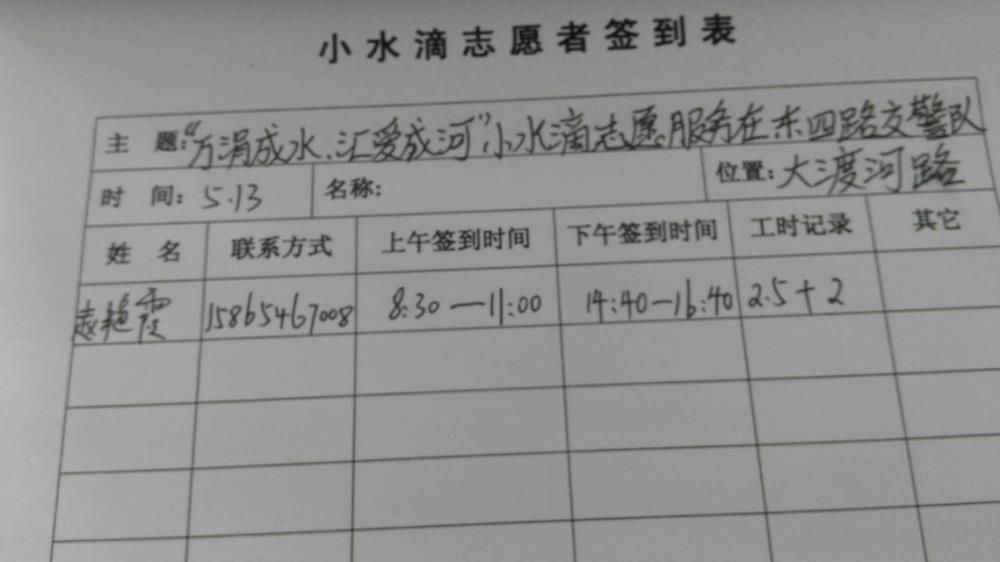 小水滴志愿者签到表
主 题:“万涓成水、汇爱成河”小水滴志愿服务在东四路交警队
时 间: 5.13 名称: 位置: 大渡河路
姓 名 联系方式 上午签到时间 下午签到时间 工时记录 其它
袁艳霞 15865467008 8:30—11:00 14:40—16:40 2.5+2